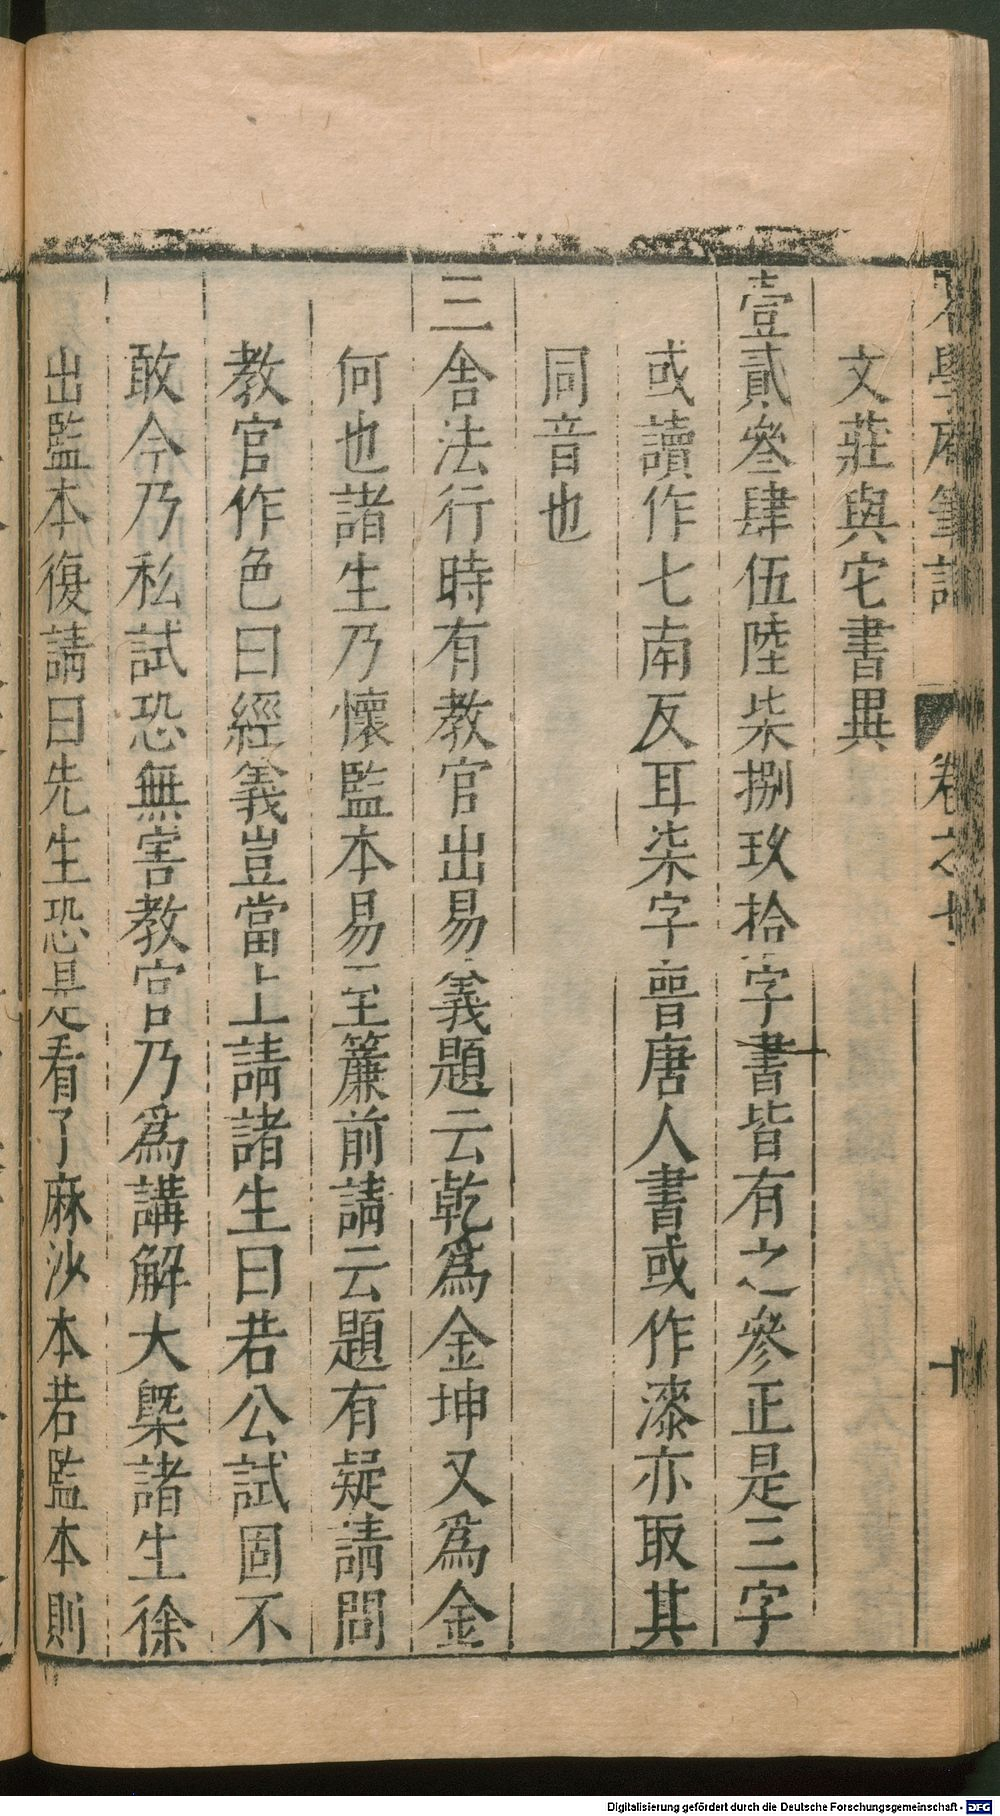 老學庵筆記 卷之七 十
文莊與宅書異
壹貳參肆伍陸柒捌玖拾字書皆有之參正是三字
或讀作七南反耳柒字晉唐人書或作漆亦取其
同音也
三舍法行時有教官出易義題云乾爲金坤又爲金
何也諸生乃懷監本易至簾前請云題有疑請問
教官作色曰經義豈當上請諸生曰若公試固不
敢今乃私試恐無害教官乃爲講解大槩諸生徐
出監本復請曰先生恐是看了麻沙本若監本則
Digitalisierung gefördert durch die Deutsche Forschungsgemeinschaft - DFG